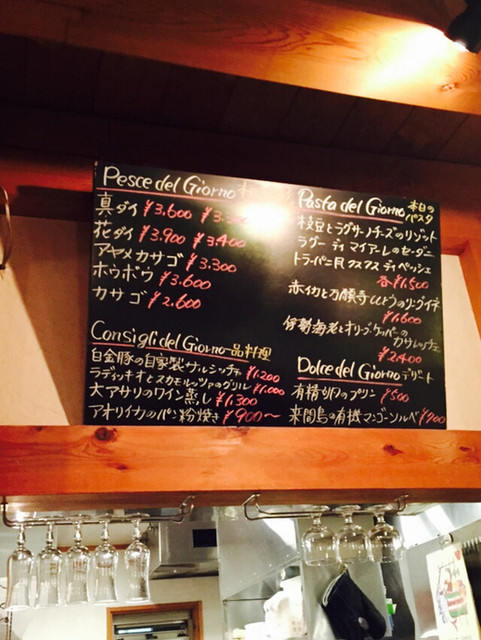 Pesce del Giorno
真ダイ ¥3.600
花ダイ ¥3.900 ¥3.400
アヤメカサゴ ¥3.300
ホウボウ ¥3.600
カサゴ ¥2.600
Consigli del Giorno 一品料理
白金豚の自家製サルシッチャ ¥1.200
ラディッキオとスカモルッツァのグリル ¥1.000
大アサリのワイン蒸し ¥1.300
アオリイカのパン粉焼き ¥900〜
Pasta del Giorno 本日のパスタ
枝豆とラグサーノチーズのリゾット
ラグー ディ マイアーレのセーダニ
トラーパニ風 クスクス ディ ペッシェ
各¥1.500
赤イカと万願寺とうがらしのリングイネ
¥1.600
伊勢海老とオリーブ、ケッパーの
カサレッチェ
¥2.400
Dolce del Giorno デザート
有精卵のプリン ¥500
来間島の有機マンゴーソルベ ¥700